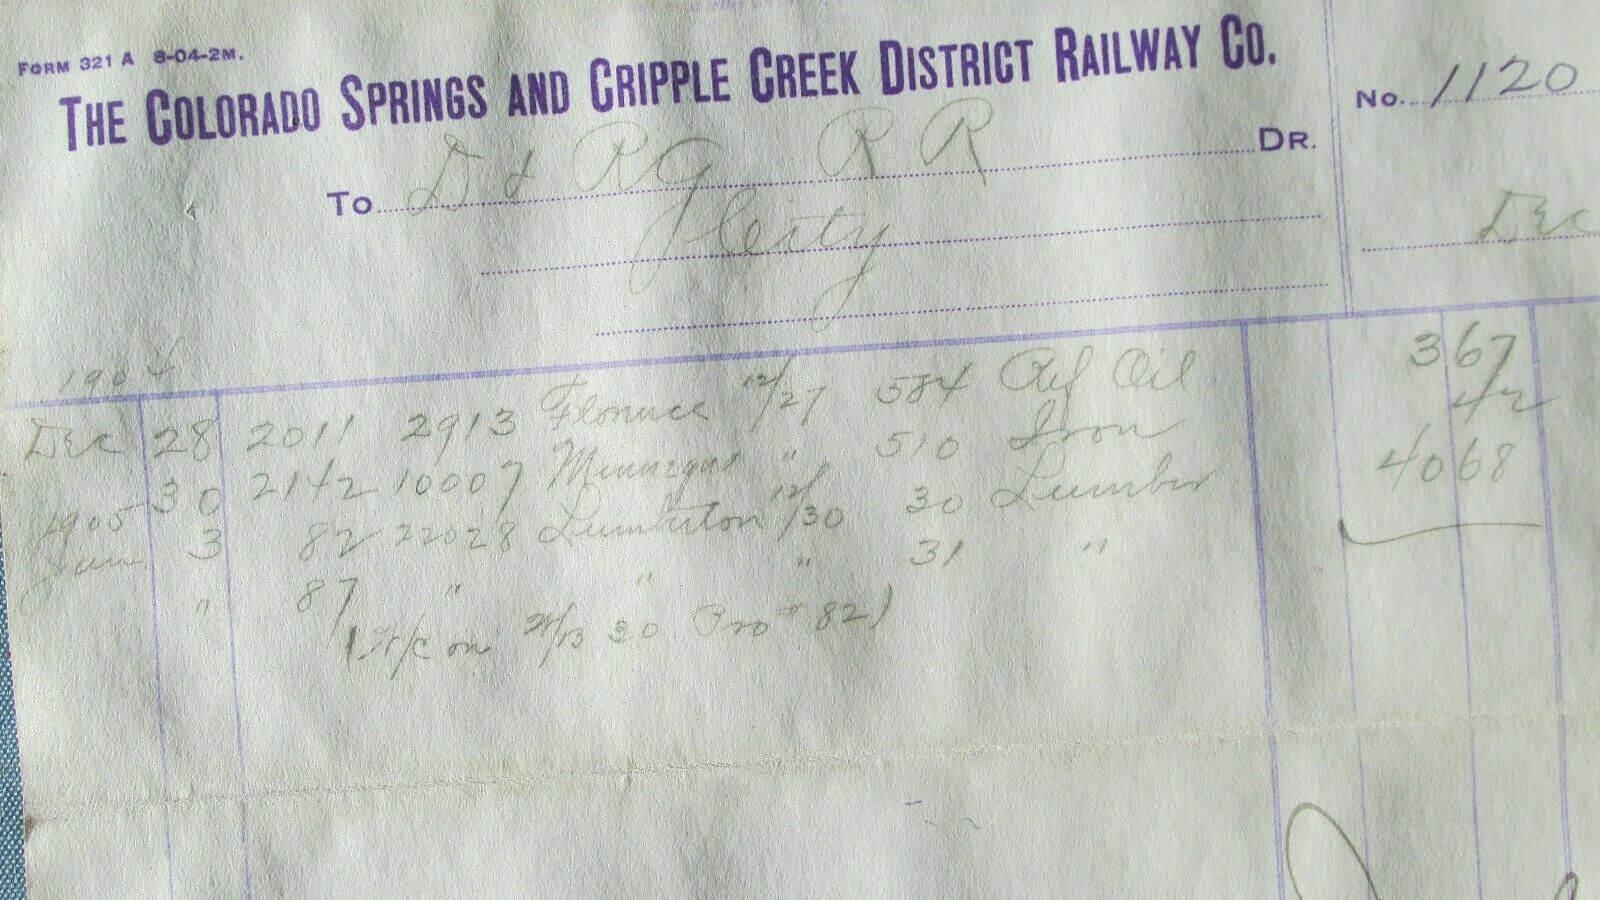 FORM 321 A 8-04-2M.
THE COLORADO SPRINGS AND CRIPPLE CREEK DISTRICT RAILWAY CO.
No. 1120
To D & RG RR DR.
Dec
1904
Dec 28 2011 2913 Florence 12/27 584 Ref Oil 3 67
30 2142 10007 " 510 Iron 42
1905
Jan 3 82 22028 Lumberton 12/30 30 Lumber 40 68
" 87 " " " 31 "
on 30 Pro # 82)